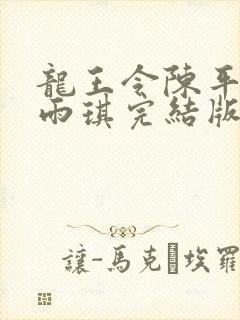 龍王令陳平
雨琪完結版
讓-馬克�埃羅